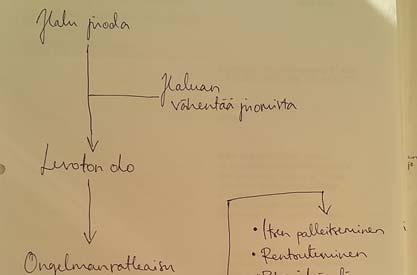 Halu juoda
Haluan
vähentää juomista
Levoton olo
• Itsen palkitseminen
• Rentoutuminen
Ongelmanratkaisu